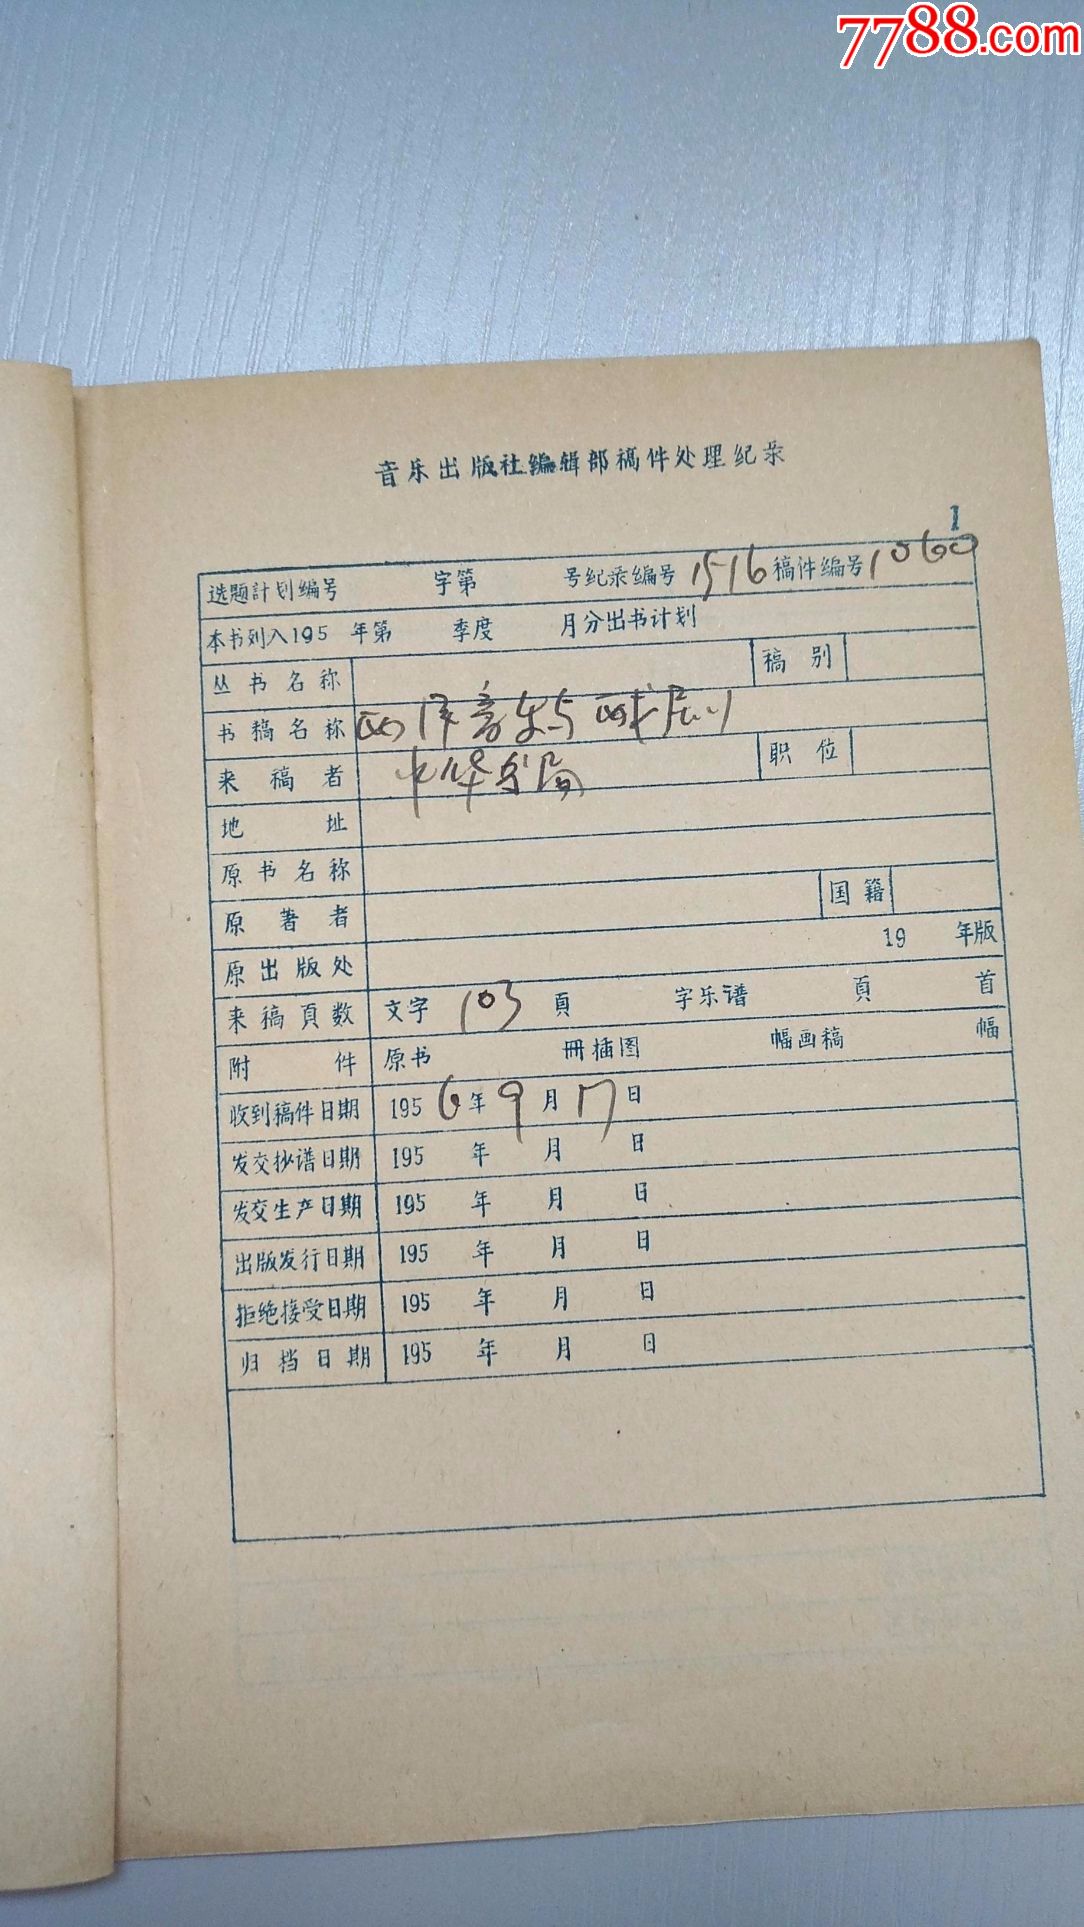 7788.com
音乐出版社编辑部稿件处理纪录
1
选题計划編号 字第 号纪录编号 1516 稿件编号 1060
本书列入195 年第 季度 月分出书计划
丛书名称 稿别
书稿名称 西洋音乐与戏剧
来稿者 中华书局 职位
地址
原书名称
原著者 国籍
原出版处 19 年版
来稿頁数 文字 103 頁 字乐谱 頁 首
附件 原书 冊插图 幅画稿 幅
收到稿件日期 1956年9月17日
发交抄谱日期 195 年 月 日
发交生产日期 195 年 月 日
出版发行日期 195 年 月 日
拒绝接受日期 195 年 月 日
归档日期 195 年 月 日